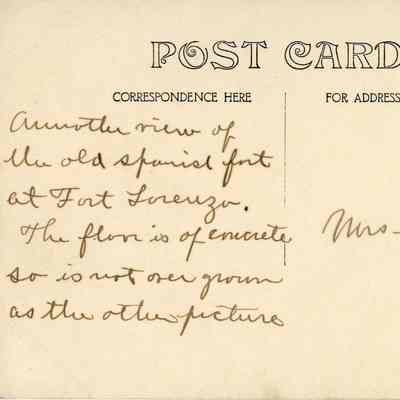 POST CARD
CORRESPONDENCE HERE
FOR ADDRESS
Annother view of
the old spanish fort
at Fort Lorenzo.
The floor is of concrete
so is not over grown
as the other picture
Mrs-